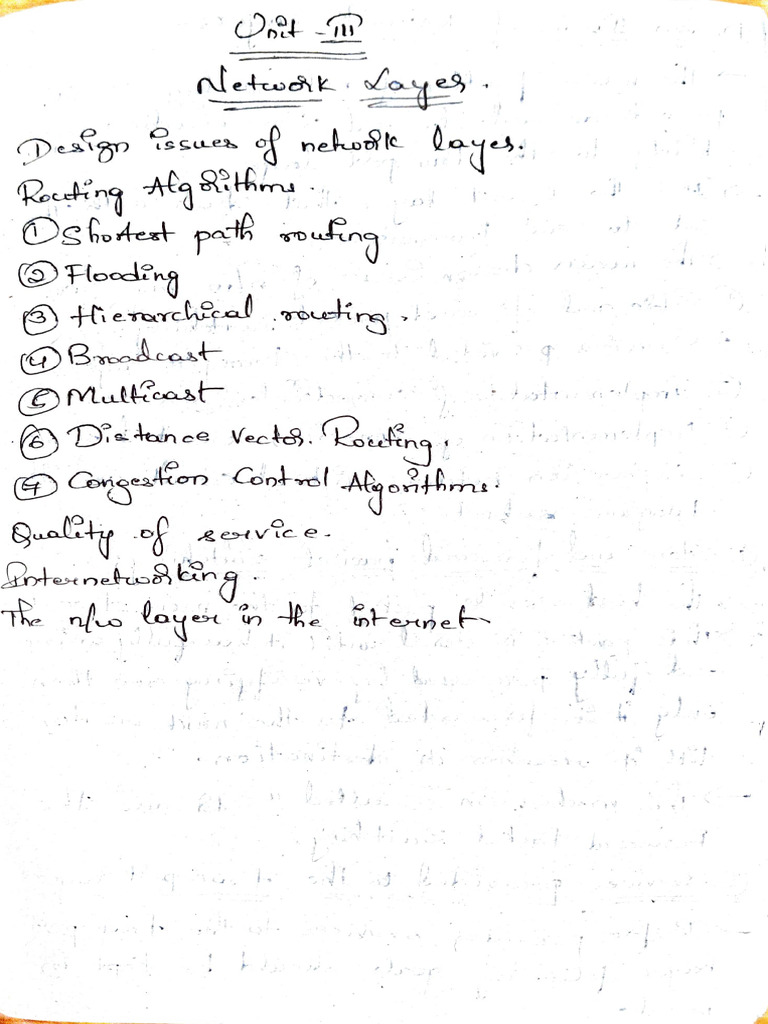 Unit - III
Network Layer.
Design issues of network layer.
Routing Algorithms.
① Shortest path routing
② Flooding
③ Hierarchical routing.
④ Broadcast
⑤ Multicast
⑥ Distance vector. Routing.
⑦ Congestion Control Algorithms.
Quality of service.
Internetworking.
The n/w layer in the internet.